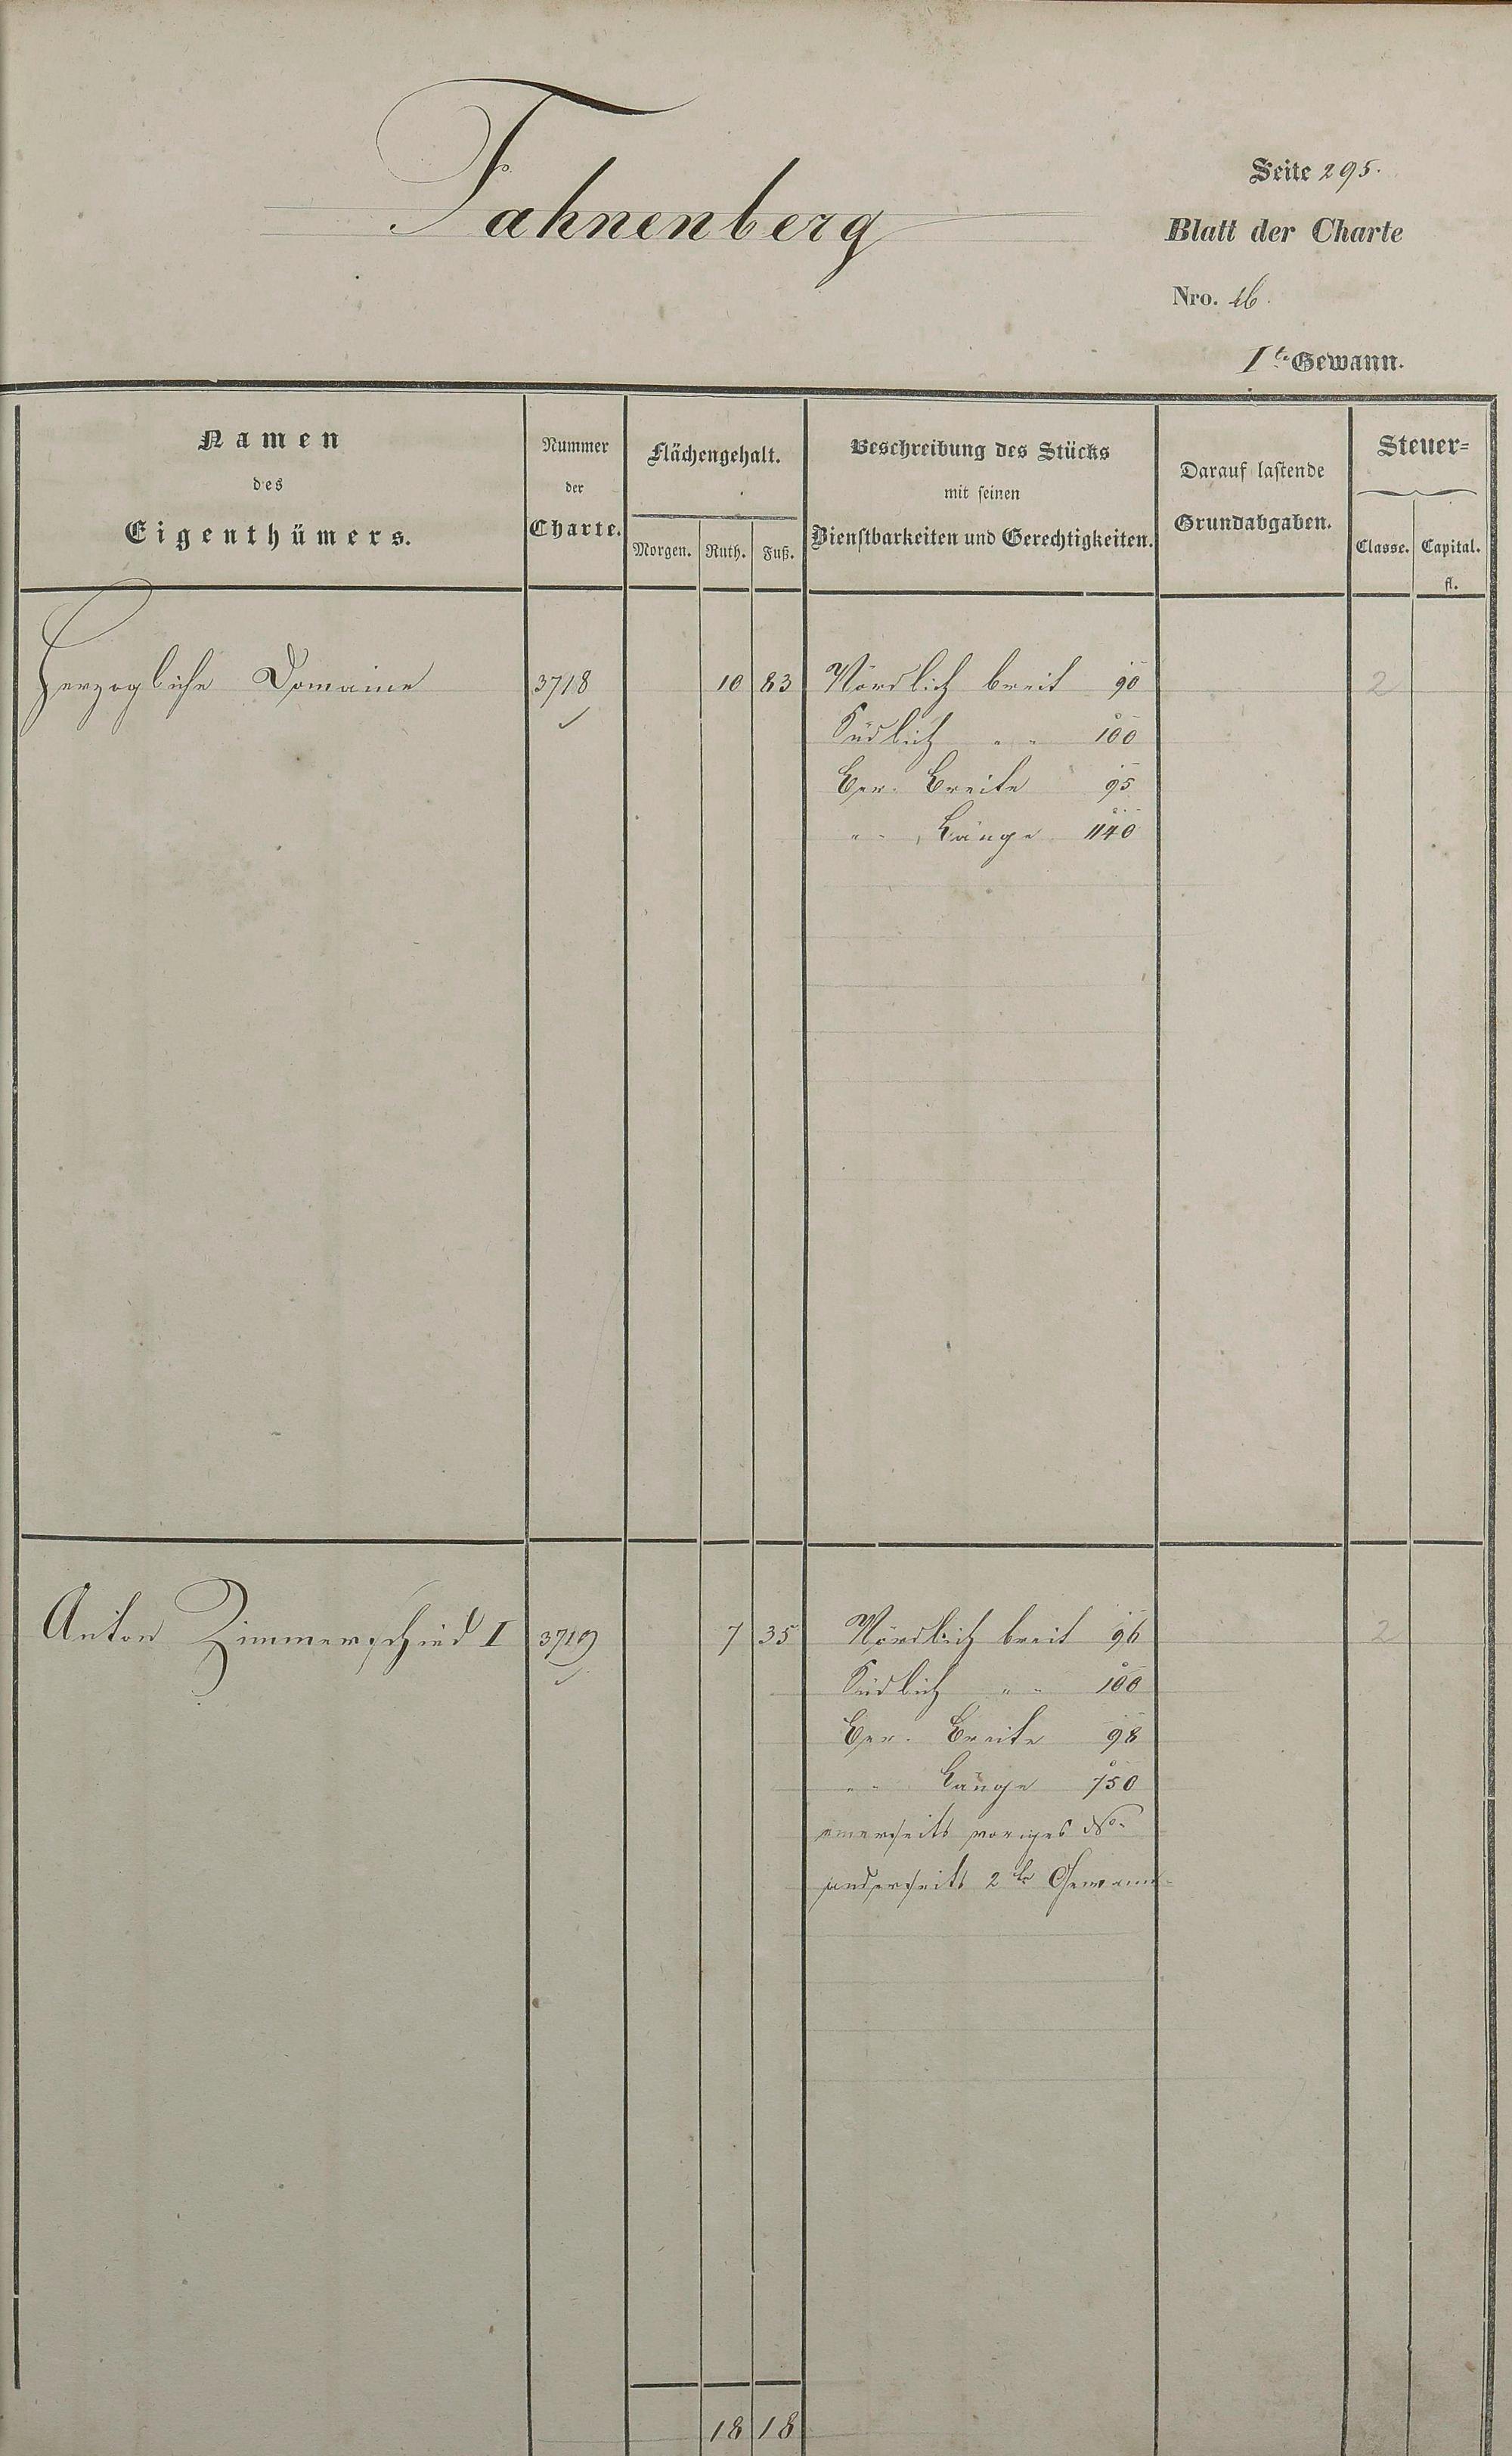 Fahnenberg
Seite 295.
Blatt der Charte
Nro. 16.
1te Gewann.
Namen
des
Eigenthümers.
Nummer
der
Charte.
Flächengehalt.
Morgen. Ruth. Fuß.
Beschreibung des Stücks
mit seinen
Dienstbarkeiten und Gerechtigkeiten.
Darauf lastende
Grundabgaben.
Steuer=
Classe. Capital.
fl.
Herzogliche Domaine 3718 10 83 Nördlich breit 90 2
Südlich " " 100
Ber. Breite 95
" " Länge 1140
Anton Zimmerschied I 3719 7 35 Nördlich breit 96 2
Südlich " " 100
Ber. Breite 98
" " Länge 750
einerseits voriges No.
anderseits 2te Gewann
18 18